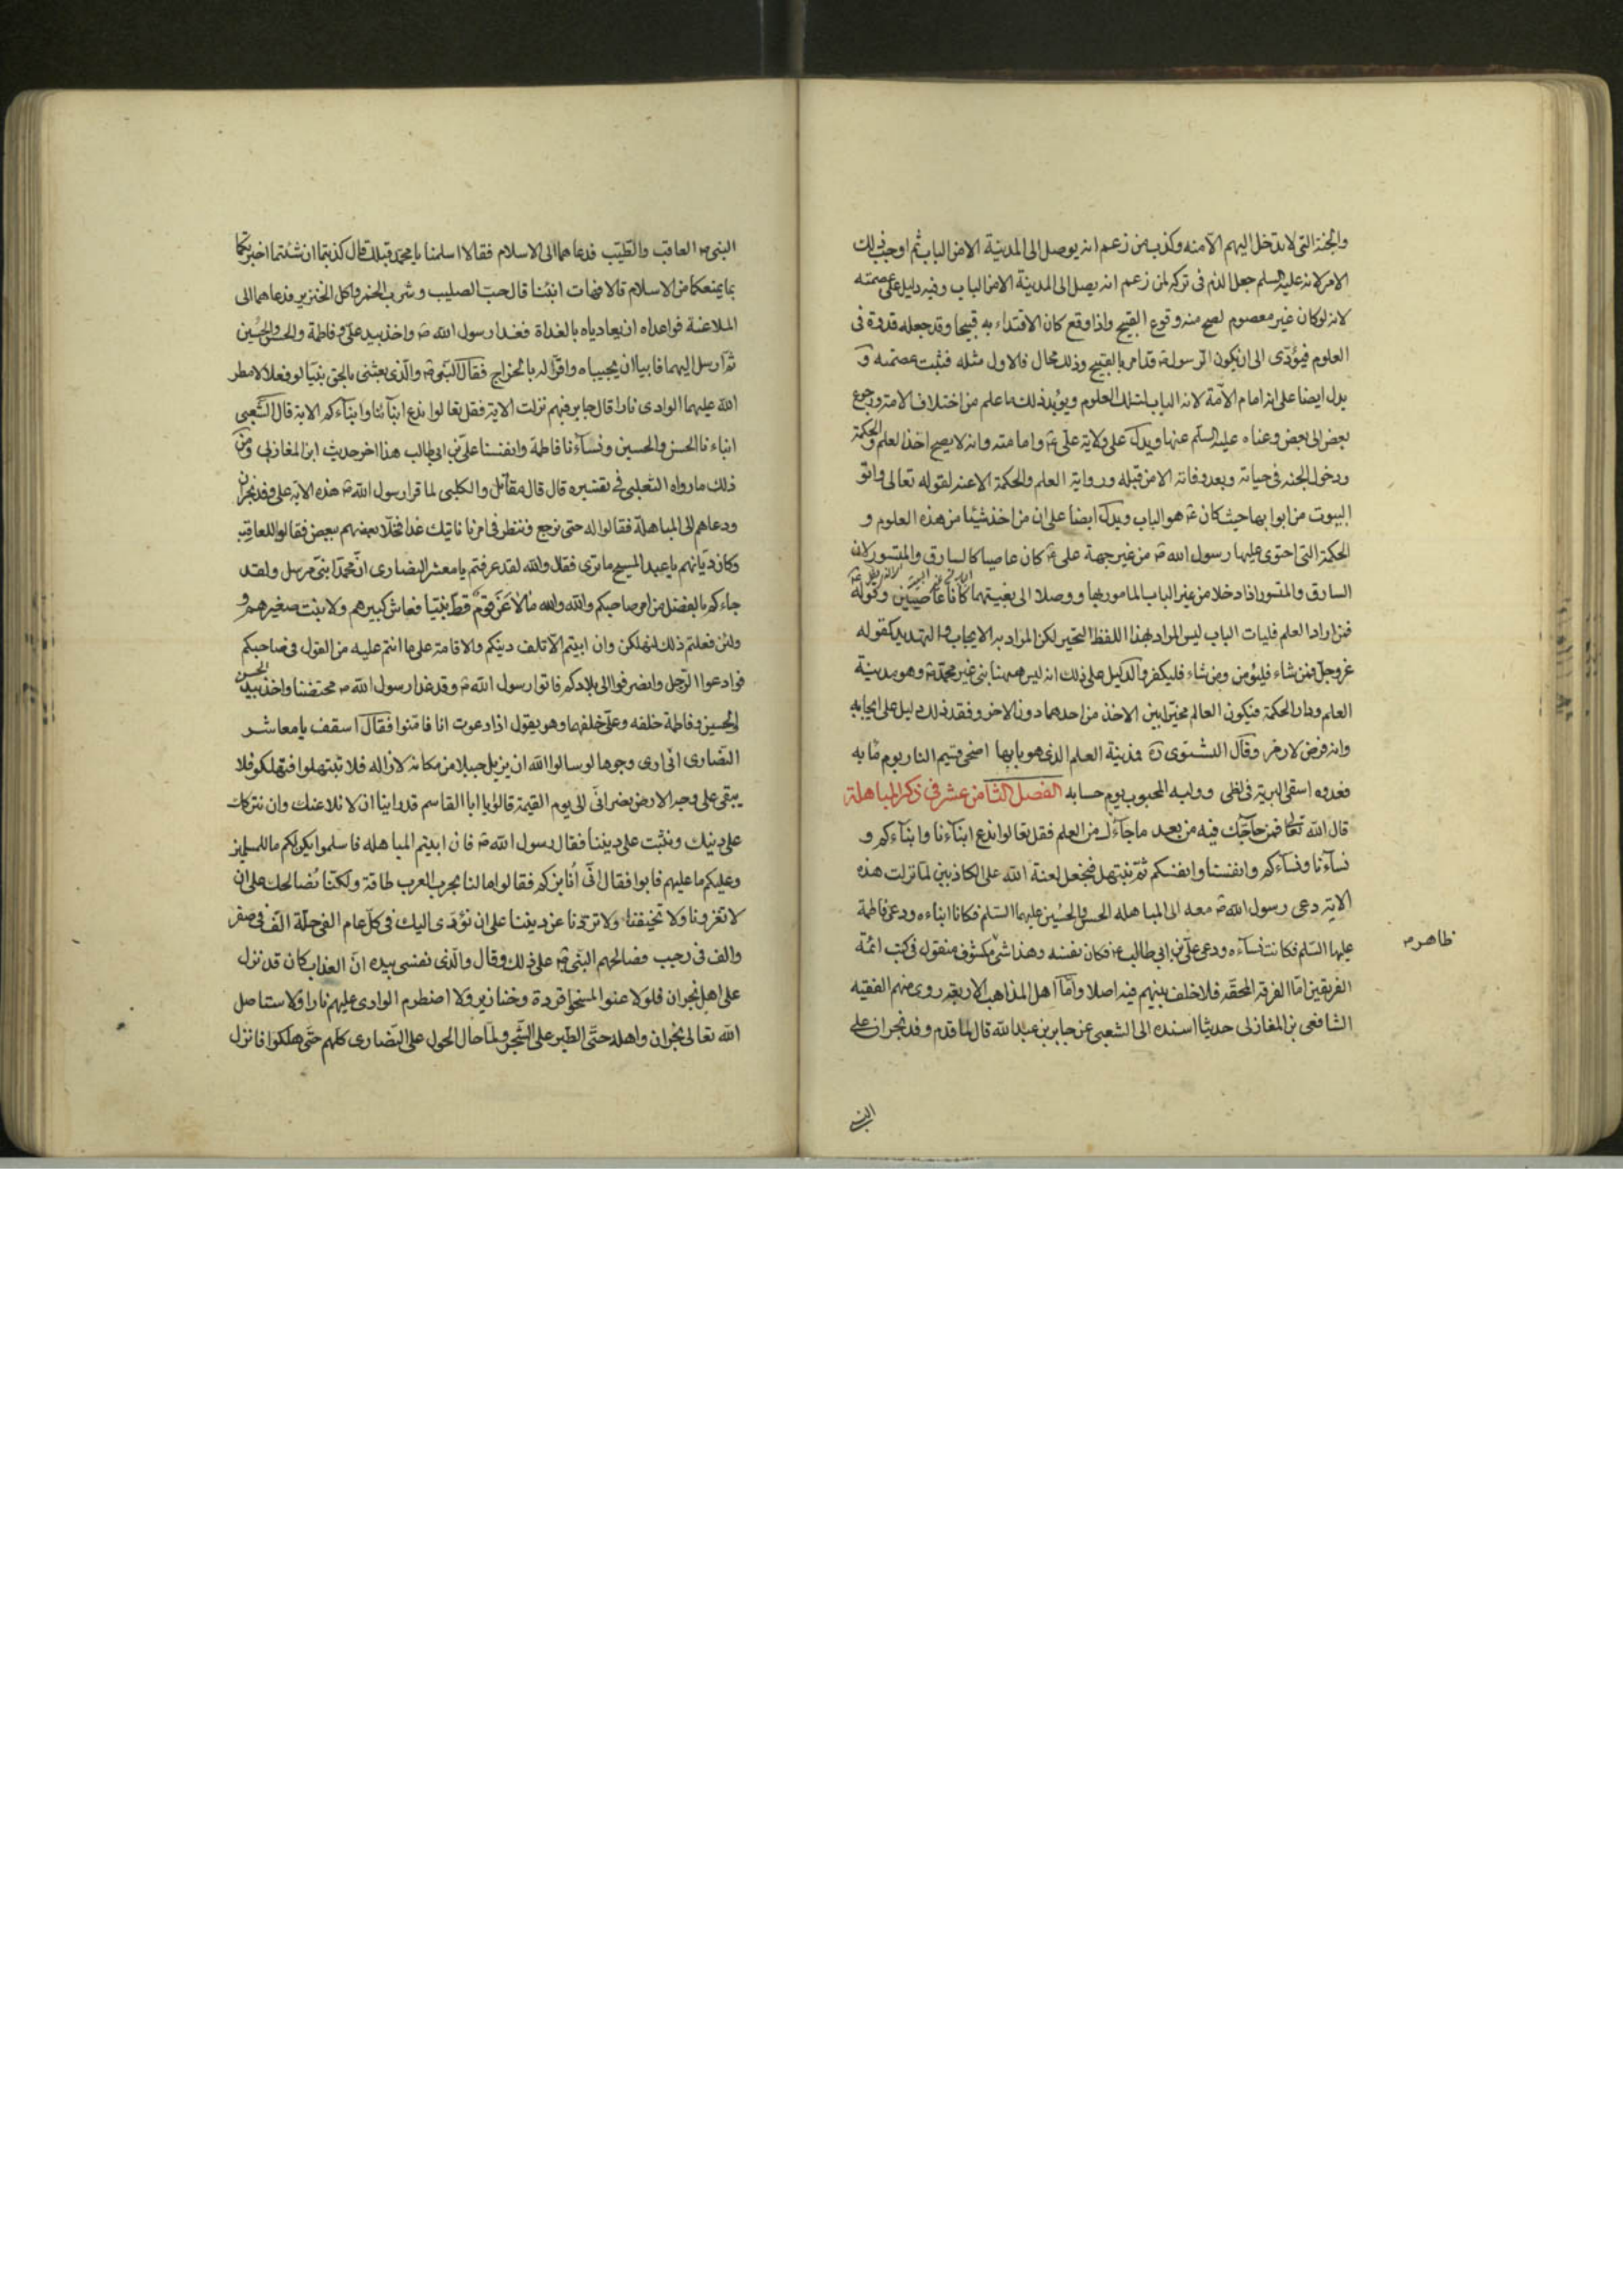 والجنة التى لا يدخل اليهم الا منه وكذب من زعم انه يوصل الى المدينة الا من الباب ثم اوجب ذلك
الامر لانه عليه السلم جعل الذم فى تركه لمن زعم انه يصل الى المدينة الا من الباب وفيه دليل على عصمته
لانه لو كان غير معصوم لصح منه وقوع القبيح واذا وقع كان الاقتداء به قبيحا وقد جعله قدوة فى
العلوم فيؤدى الى ان يكون الرسول ص قد امر بالقبيح وذلك محال فالاول مثله فثبت عصمته و
يدل ايضا على انه امام الامة لانه الباب لتلك العلوم ويؤيد ذلك ما علم من اختلاف الامة ورجوع
بعض الى بعض وغناه عليه السلم عنها ويدل على ولاية على ع وامامته وانه لا يصح اخذ العلم والحكمة
ودخول الجنة فى حياته وبعد وفاته الا من قبله ورواية العلم والحكمة الا عنه لقوله تعالى واتو
البيوت من ابوابها حيث كان ع هو الباب ويدل ايضا على ان من اخذ شيئا من هذه العلوم و
الحكمة التى احتوى عليها رسول الله ص من غير جهة على ع كان عاصيا كالسارق والمتسور لان
السارق والمتسور اذا دخلا من غير الباب المامور بها ووصلا الى بغيتهما كانا عاصيين وقوله ع
فمن اراد العلم فليات الباب ليس المراد بهذا اللفظ التخير لكن المراد به الايجاب والتهديد كقوله
عز وجل فمن شاء فليؤمن ومن شاء فليكفر والدليل على ذلك انه ليس ههنا نبى غير محمد ص وهو مدينة
العلم ودار الحكمة فيكون العالم مخيرا بين الاخذ من احدهما دون الاخر وفقد ذلك دليل على ايجابه
وانه فرض لازم وقال البشنوى ره فمدينة العلم الذى هو بابها اضحى قسيم النار يوم مآبه
فعدوه اشقى البرية فى لظى ووليه المحبوب يوم حسابه الفصل الثامن عشر فى ذكر المباهلة
قال الله تعالى فمن حاجك فيه من بعد ما جاءك من العلم فقل تعالوا ندع ابناءنا وابناءكم و
نساءنا ونساءكم وانفسنا وانفسكم ثم نبتهل فنجعل لعنة الله على الكاذبين لما نزلت هذه
الاية دعى رسول الله ص معه الى المباهله الحسن والحسين عليهما السلم فكانا ابناءه ودعى فاطمة
عليها السلم فكانت نساءه ودعى على بن ابى طالب ع فكان نفسه وهذا شئ مكشوف منقول فى كتب ائمة
ظاهر م
الفريقين اما الفرقة المحقه فلا خلف بينهم فيه اصلا واما اهل المذاهب الاربعة روى منهم الفقيه
الشافعى بن المغازلى حديثا اسنده الى الشعبى عن جابر بن عبد الله قال لما قدم وفد نجران على
النبى
النبى ص العاقب والطيب فدعاهما الى الاسلام فقالا اسلمنا يا محمد قبلك قال كذبتما ان شئتما اخبرتكما
بما يمنعكما من الاسلام قالا فهات انبئنا قال حب الصليب وشرب الخمر واكل الخنزير فدعاهما الى
الملاعنة فواعداه ان يغادياه بالغداة فغدا رسول الله ص واخذ بيد على وفاطمة والحسن والحسين
ثم ارسل اليهما فابيا ان يجيباه واقرا له بالخراج فقال النبى ص والذى بعثنى بالحق نبيا لو فعلا لامطر
الله عليهما الوادى نارا قال جابر فيهم نزلت الاية فقل تعالوا ندع ابنائنا وابناءكم الاية قال الشعبى
ابناءنا الحسن والحسين ونساءنا فاطمة وانفسنا على بن ابى طالب هذا اخر حديث ابن المغازلى ومن
ذلك ما رواه الثعلبى فى تفسيره قال قال مقاتل والكلبى لما قرا رسول الله ص هذه الاية على وفد نجران
ودعاهم الى المباهلة فقالوا له حتى نرجع وننظر فى امرنا ناتيك غدا فخلا بعضهم ببعض فقالوا للعاقب
وكان ديانهم يا عبد المسيح ما ترى فقال والله لقد عرفتم يا معشر النصارى ان محمدا نبى مرسل ولقد
جاءكم بالفضل من امر صاحبكم والله والله ما لاعن قوم قط نبيا فعاش كبيرهم ولا نبت صغيرهم و
ولئن فعلتم ذلك لتهلكن وان ابيتم الا تلف دينكم والاقامة على ما انتم عليه من القول فى صاحبكم
فوادعوا الرجل وانصرفوا الى بلادكم فاتوا رسول الله ص وقد غدا رسول الله ص محتضنا واخذ بيد الحسن
الحسين وفاطمة خلفه وعلى خلفهما وهو يقول اذا دعوت انا فامنوا فقال اسقف يا معاشر
النصارى انى ارى وجوها لو سالوا الله ان يزيل جبلا من مكانه لازاله فلا تبتهلوا فتهلكوا فلا
يبقى على وجه الارض نصرانى الى يوم القيمة قالوا يا ابا القاسم قد راينا ان لا نلاعنك وان نتركك
على دينك ونثبت على ديننا فقال رسول الله ص فان ابيتم المباهله فاسلموا يكن لكم ما للمسلمين
وعليكم ما عليهم فابوا فقال انى أنابزكم فقالوا ما لنا بحرب العرب طاقة ولكنا نصالحك على ان
لا تغزونا ولا تخيفنا ولا تردنا عن ديننا على ان نؤدى اليك فى كل عام الفى حلة الف فى صفر
والف فى رجب فصالحهم النبى ص على ذلك وقال والذى نفسى بيده ان العذاب كان قد نزل
على اهل نجران فلو لاعنوا لمسخوا قردة وخنازير ولاضطرم الوادى عليهم نارا ولاستاصل
الله تعالى نجران واهله حتى الطير على الشجر ولما حال الحول على النصارى كلهم حتى هلكوا فانزل